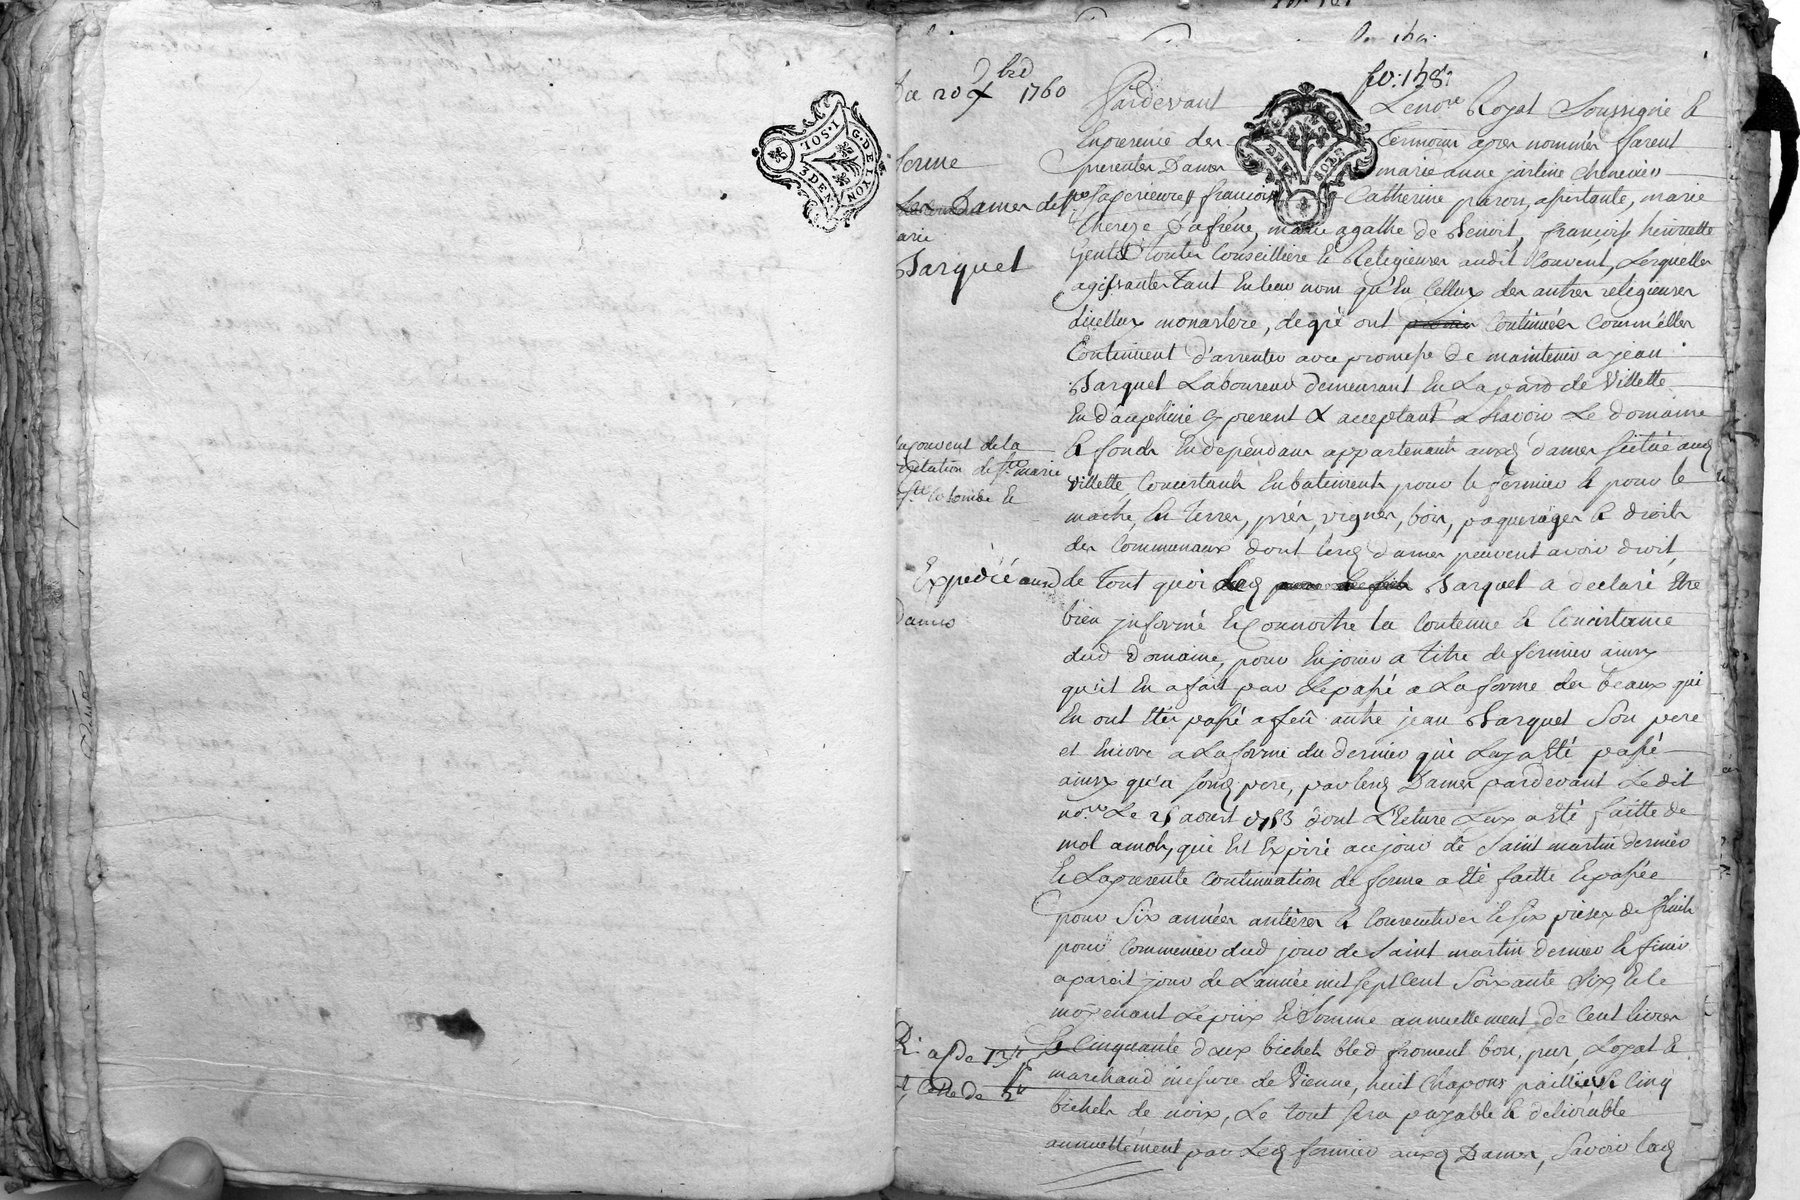 G. DE LYON
1. SOL
3 DEN.
Du 20 Xbre 1760
ferme
Les Dames de
Sarquet
au couvent de la
visitation de Ste marie
Ste Colombe Et
Expedié auxd
Dames
fo: 148:
Pardevant Lenore Royal Soussigné Et
Enpresence des Temoins apres nommés furent
presentes Dames marie anne justine Chenevier
Superieure, françoise Catherine paron, assistante, marie
Thereze Dufrêne, marie agathe de Benoit, françoise henriette
Gentil Toutes Conseilliere Et Religieuses audit Couvent, Lesquelles
agissantes Tant Enleur nom qu'En Celluy des autres religieuses
dicelluy monastere, degré ont continuées comm'elles
Continuent d'arrenter avec promesse De maintenir a jean
Sarquet Laboureur demeurant En La par de Villette
En D'auphiné Cy present & acceptant a Scavoir Le domaine
Et fonds Endependans appartenants auxd Dames scitué aud
Villette, Concistants Enbatiments pour le fermier Et pour le
maitre, En Terres, prés, vignes, bois, paquerages Et droits
des Communaux dont lesd Dames peuvent avoir droit,
de Tout quoi Led Sarquet a declaré Etre
bien jnformé Et Connoitre La Contenue Et Concistance
dud Domaine, pour En jouir a titre de fermier ainsy
qu'il En a fait par Lepassé a La forme des beaux qui
En ont Etés passé a feu autre jean Sarquet Son pere
et Encore a Laforme du dernier qui Luy a Eté passé
ainsy qu'a sond pere, par lesd Dames pardevant Le dit
nore Le 25 aoust 1753 dont L'Ecture Luy a Eté faitte de
mot amot, qui Est Expiré au jour de Saint martin dernier
Et La presente Continuation de ferme a Eté faitte Et passée
pour Six années antieres Et Consecutives Et Six prises de fruits
pour Commencer dud jour de Saint martin dernier Et finir
a pareil jour de L'année mil Sept Cent Soixante Six, Et le
moyenant Le prix Et Somme annuellement de Cent livres
Et Cinquante Deux bichets bled froment bon, pur, Loyal Et
marchand mesure de Vienne, huit Chapons pailliers Et Cinq
bichets de noix, Le tout Sera payable Et delivrable
annuellement par Led fermier auxd Dames, Savoir lad